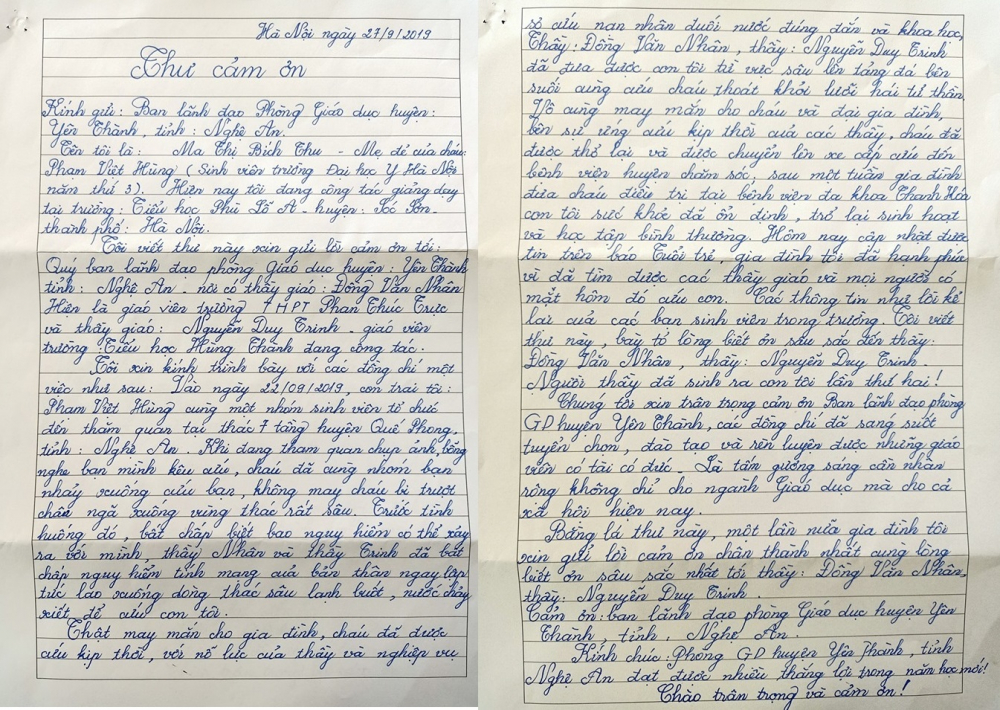 Hà Nội ngày 27/9/2019
Thư cảm ơn
Kính gửi: Ban lãnh đạo Phòng Giáo dục huyện:
Yên Thành, tỉnh: Nghệ An.
Tên tôi là: Ma Thị Bích Thu - Mẹ đẻ của cháu:
Phạm Việt Hùng (Sinh viên trường Đại học Y Hà Nội
năm thứ 3). Hiện nay tôi đang công tác giảng dạy
tại trường: Tiểu học Phù Lỗ A - huyện: Sóc Sơn -
thành phố: Hà Nội.
Tôi viết thư này xin gửi lời cảm ơn tới:
Quý ban lãnh đạo phòng Giáo dục huyện: Yên Thành
tỉnh: Nghệ An nơi có thầy giáo: Đồng Văn Nhân
Hiện là giáo viên trường THPT Phan Thúc Trực
và thầy giáo: Nguyễn Duy Trinh - giáo viên
trường: Tiểu học Hùng Thành đang công tác.
Tôi xin kính trình bày với các đồng chí một
việc như sau: Vào ngày 22/09/2019, con trai tôi:
Phạm Việt Hùng cùng một nhóm sinh viên tổ chức
đến thăm quan tại thác 7 tầng huyện Quế Phong,
tỉnh: Nghệ An. Khi đang tham quan chụp ảnh, bỗng
nghe bạn mình kêu cứu, cháu đã cùng nhóm bạn
nhảy xuống cứu bạn, không may cháu bị trượt
chân ngã xuống vùng thác rất sâu. Trước tình
huống đó, bất chấp biết bao nguy hiểm có thể xảy
ra với mình thầy Nhân và thầy Trinh đã bất
chấp nguy hiểm tính mạng của bản thân ngay lập
tức lao xuống dòng thác sâu lạnh buốt, nước chảy
xiết, để cứu con tôi.
Thật may mắn cho gia đình, cháu đã được
cứu kịp thời, với nỗ lực của thầy và nghiệp vụ
sơ cứu nạn nhân đuối nước đúng đắn và khoa học,
Thầy: Đồng Văn Nhân, thầy: Nguyễn Duy Trinh
đã đưa được con tôi từ vực sâu lên tảng đá bên
suối cùng cứu cháu thoát khỏi lưỡi hái tử thần.
Vô cùng may mắn cho cháu và đại gia đình,
bên sự ứng cứu kịp thời của các thầy, cháu đã
được thở lại và được chuyển lên xe cấp cứu đến
bệnh viện huyện chăm sóc, sau một tuần gia đình
đưa cháu điều trị tại bệnh viện đa khoa Thanh Hóa
con tôi sức khỏe đã ổn định, trở lại sinh hoạt
và học tập bình thường. Hôm nay cập nhật được
tin trên báo Tuổi trẻ, gia đình tôi đã hạnh phúc
vì đã tìm được các thầy giáo và mọi người có
mặt hôm đó cứu con. Các thông tin như lời kể
lại của các bạn sinh viên trong trường. Tôi viết
thư này, bày tỏ lòng biết ơn sâu sắc đến thầy:
Đồng Văn Nhân, thầy: Nguyễn Duy Trinh.
Người thầy đã sinh ra con tôi lần thứ hai!
Chúng tôi xin trân trọng cảm ơn Ban lãnh đạo phòng
GD huyện Yên Thành, các đồng chí đã sáng suốt
tuyển chọn, đào tạo và rèn luyện được những giáo
viên có tài có đức - Là tấm gương sáng cần nhân
rộng không chỉ cho ngành Giáo dục mà cho cả
xã hội hiện nay.
Bằng lá thư này, một lần nữa gia đình tôi
xin gửi lời cảm ơn chân thành nhất cùng lòng
biết ơn sâu sắc nhất tới thầy: Đồng Văn Nhân,
thầy: Nguyễn Duy Trinh.
Cảm ơn: ban lãnh đạo phòng Giáo dục huyện Yên
Thành, tỉnh, Nghệ An.
Kính chúc: Phòng GD huyện Yên Thành, tỉnh
Nghệ An đạt được nhiều thắng lợi trong năm học mới!
Chào trân trọng và cảm ơn!